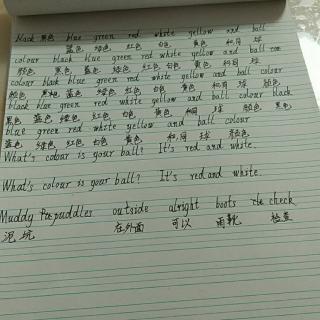 black 黑色 blue green red white yellow and ball
蓝色 绿色 红色 白色 黄色 和 球
colour black blue green red white yellow and ball
颜色 黑色 蓝色 绿色 红色 白色 黄色 和 球
colour black blue green red white yellow and ball colour
颜色 黑色 蓝色 绿色 红色 白色 黄色 和 球 颜色
black blue green red white yellow and ball colour black
黑色 蓝色 绿色 红色 白色 黄色 和 球 颜色 黑色
blue green red white yellow and ball colour
蓝色 绿色 红色 白色 黄色 和 球 颜色
What's colour is your ball? It's red and white.
What's colour is your ball? It's red and white.
Muddy puddles outside alright boots check
泥坑 在外面 可以 雨靴 检查